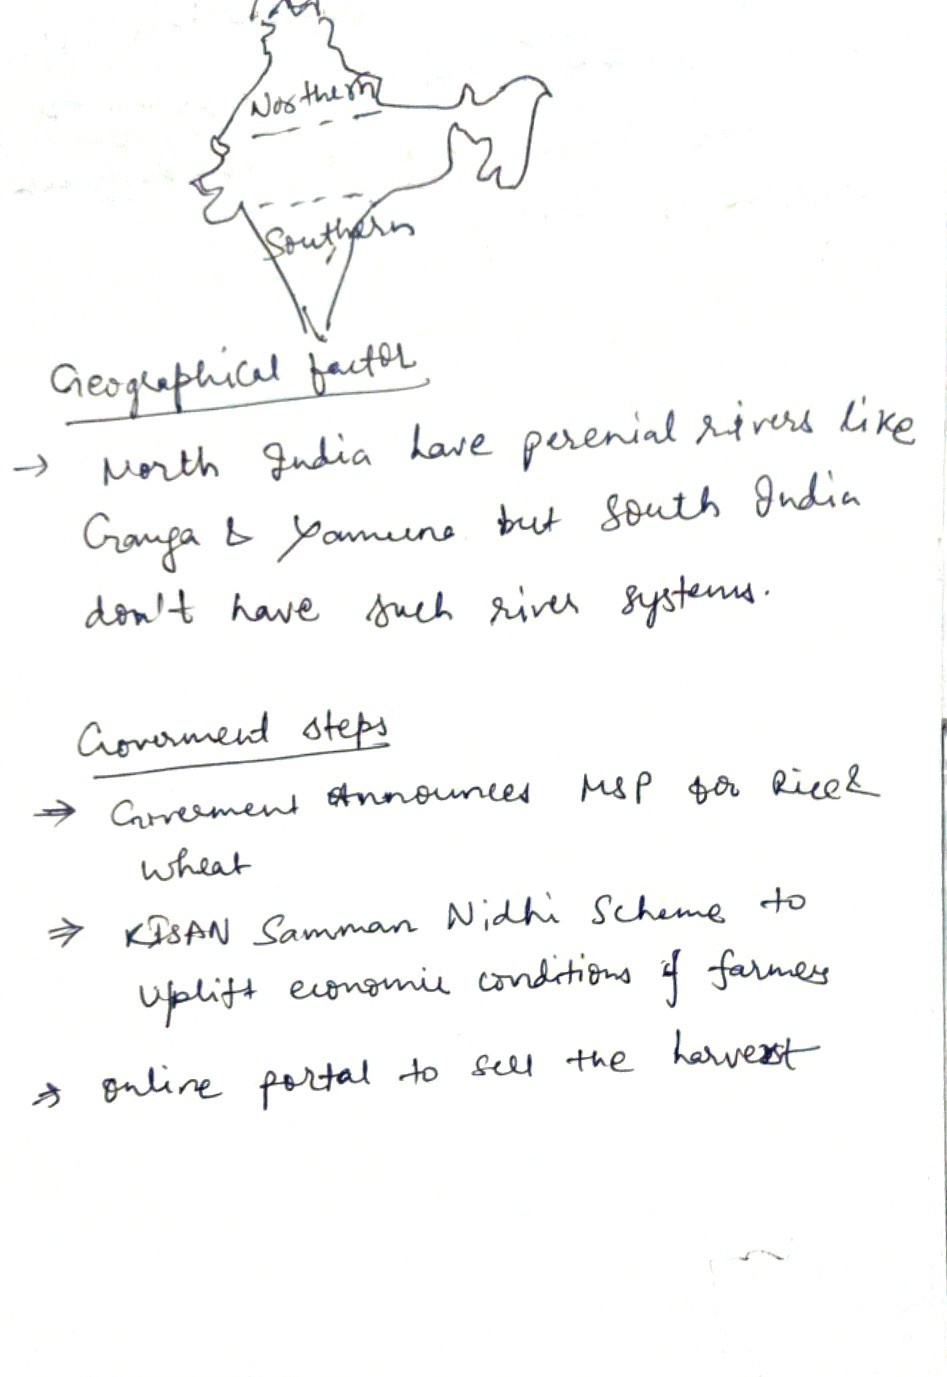 Northern
Southern
Geographical factor
→ North India have perenial rivers like
Ganga & Yamuna but South India
don't have such river systems.
Goverment steps
⇒ Goverment Announces MSP for Rice &
wheat
⇒ KISAN Samman Nidhi Scheme to
uplift economic conditions of farmers
⇒ online portal to sell the harvest